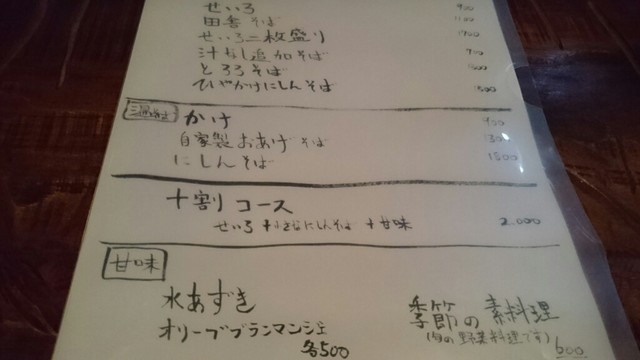 せいろ 900
田舎そば 1100
せいろ二枚盛り
汁なし追加そば
とろろそば
ひやかけにしんそば 1500
温そば かけ 900
自家製おあげそば
にしんそば 1500
十割コース
せいろ + 小さなにしんそば + 甘味 2.000
甘味
水あずき
オリーブブランマンジェ
各500
季節の素料理
(旬の野菜料理です) 600